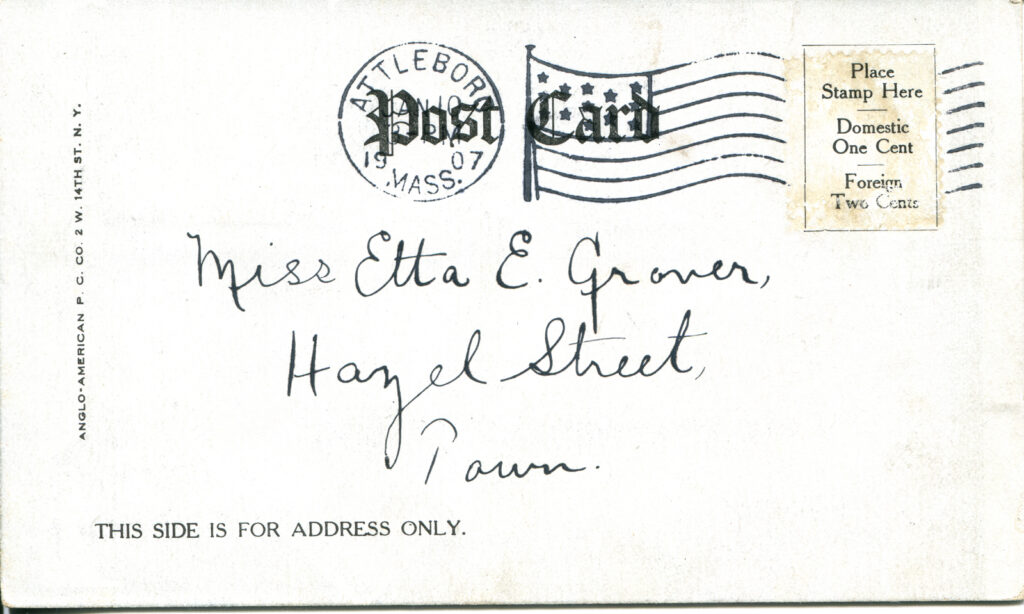 ATTLEBORO
JAN 10
19 07
MASS.
Post Card
Place
Stamp Here
Domestic
One Cent
Foreign
Two Cents
ANGLO-AMERICAN P. C. CO. 2 W. 14TH ST. N. Y.
Miss Etta E. Grover,
Hazel Street,
Town.
THIS SIDE IS FOR ADDRESS ONLY.